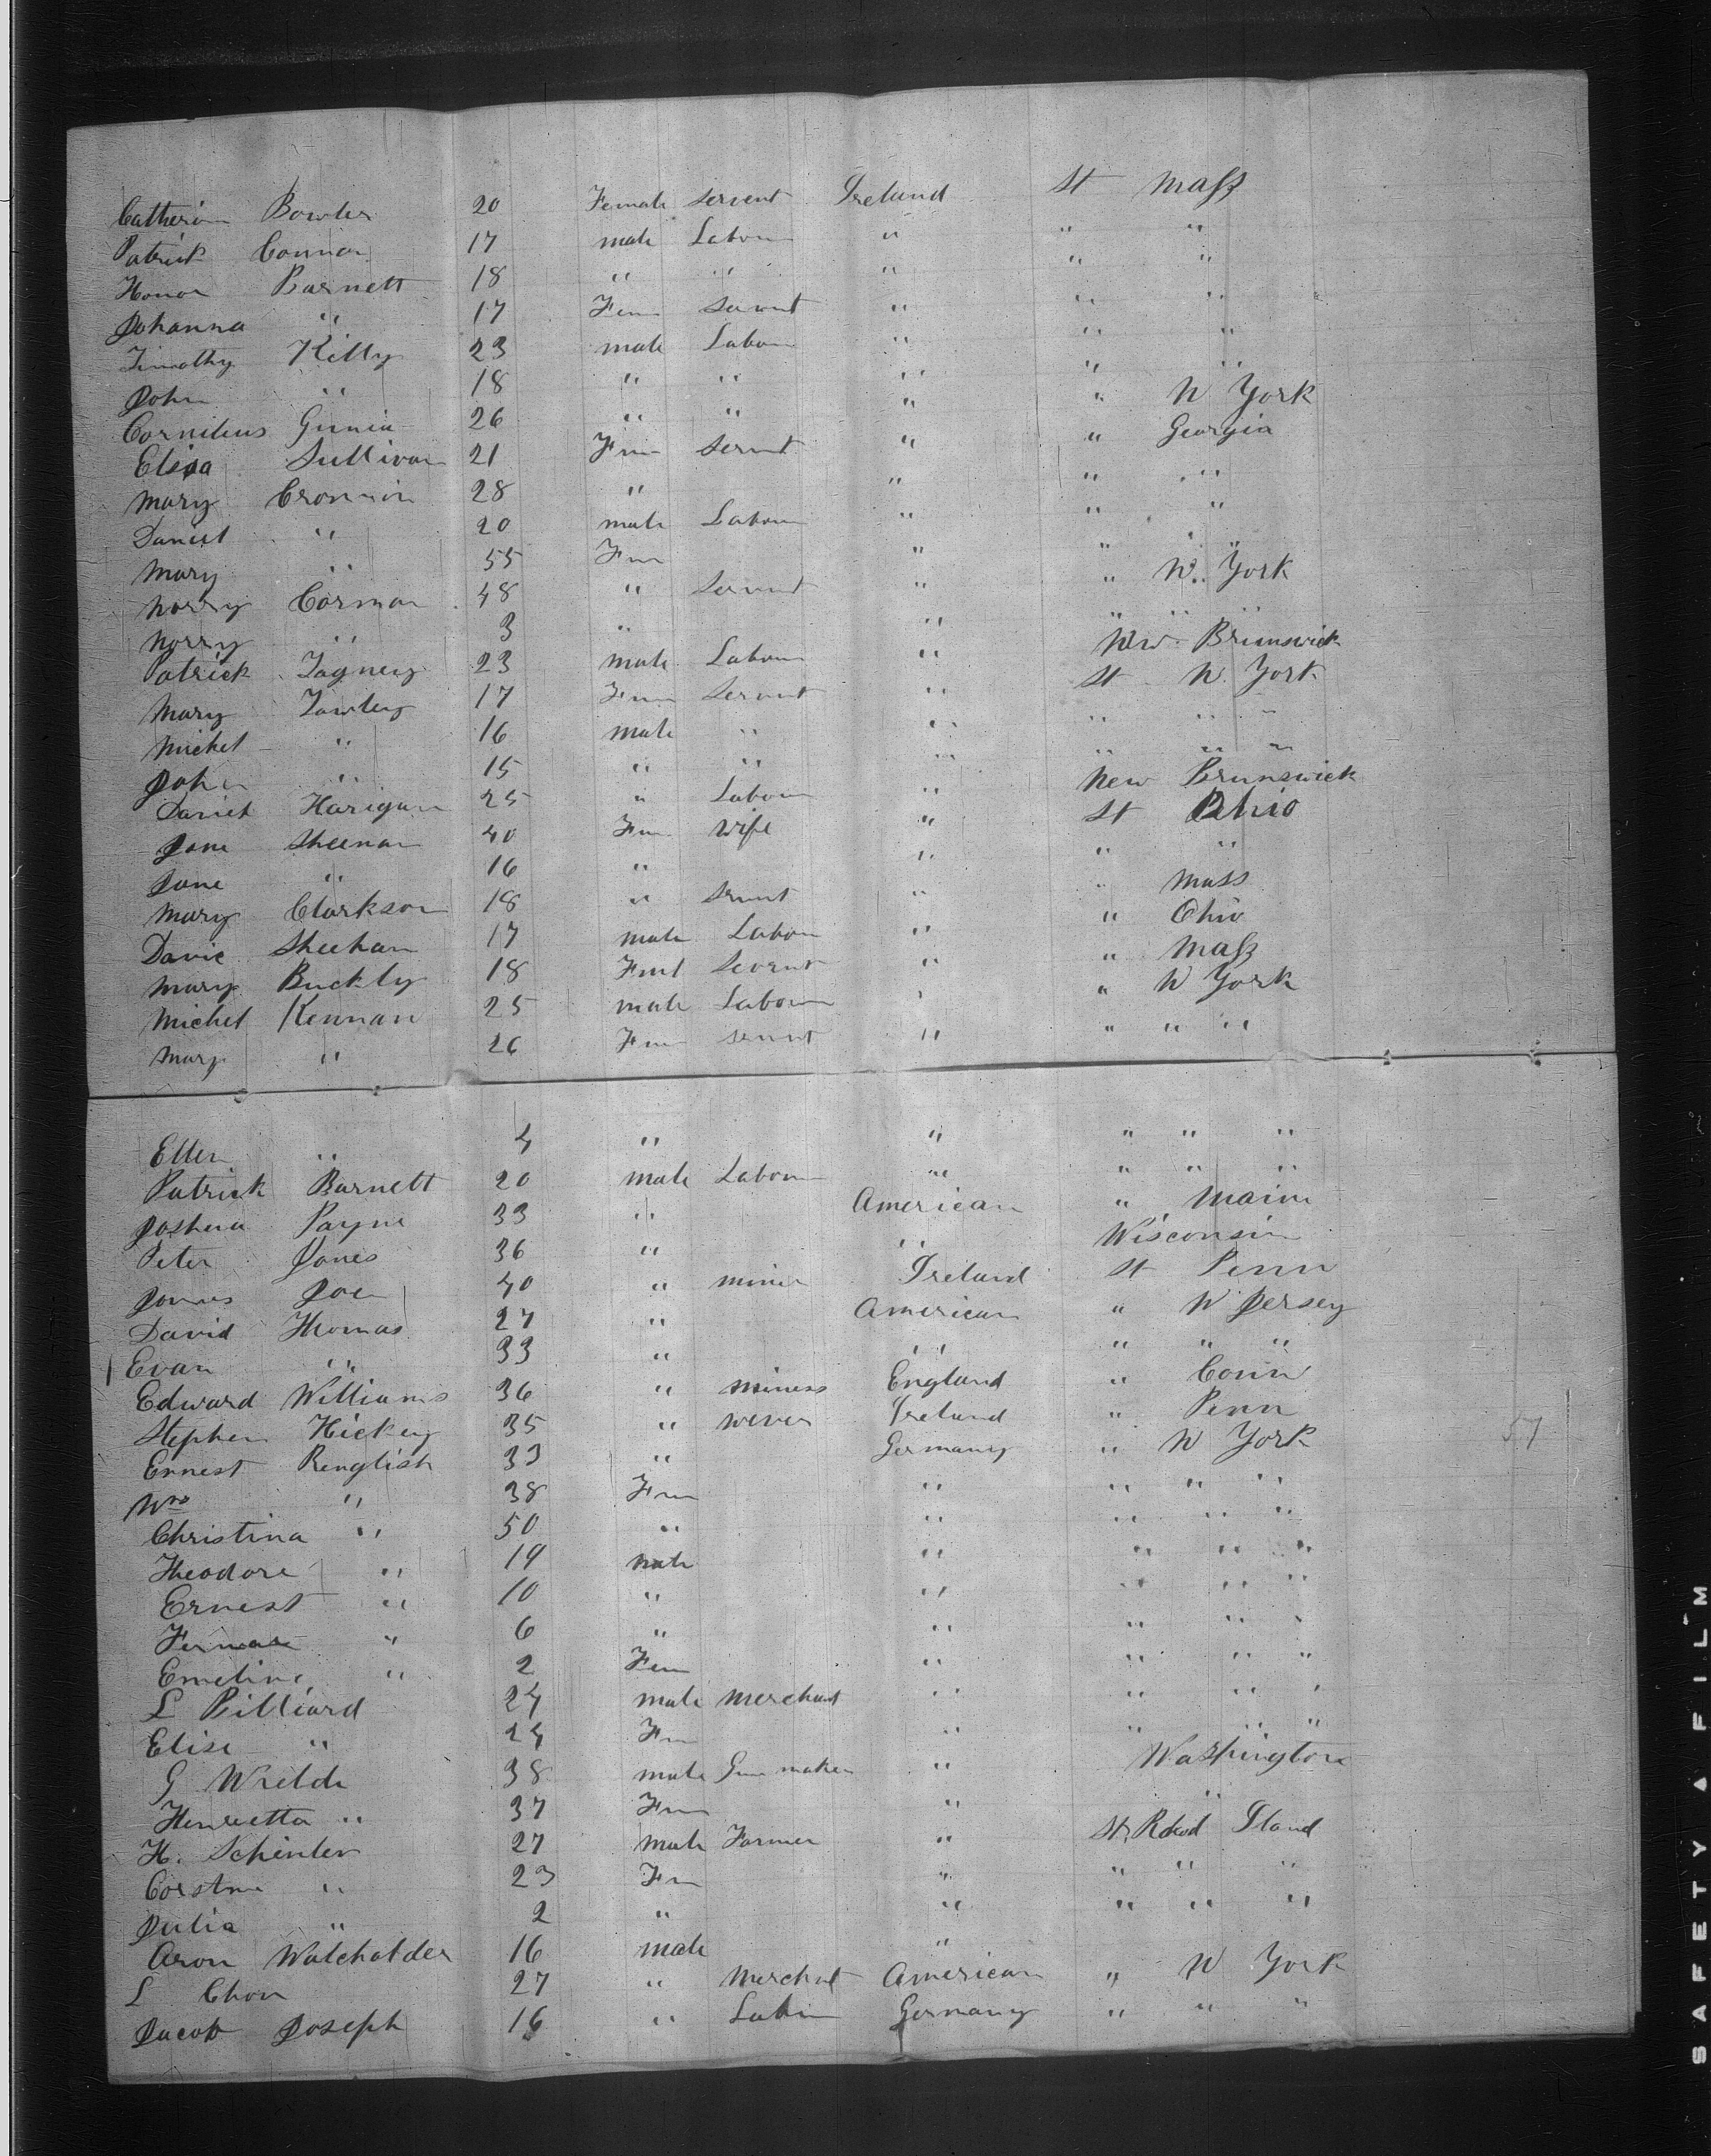 Catherin Bowler 20 Female Servent Ireland St Mass
Patrick Connor 17 male Labour " " "
Honor Barnett 18 " " " " "
Johanna " 17 Fem Servnt " " "
Timothy Killy 23 male Labour " " "
John " 18 " " " " "
Cornilius 26 " " " " N York
Eliza Sullivan 21 Fem Servnt " " Georgia
Mary Cronnin 28 " " " "
Daniel " 20 male Labour " " "
Mary " 55 Fem " " "
Norry Corman 48 " Servnt " " N. York
Norry " 3 " " " " "
Patrick Tagney 23 male Labour " New Brunswick
Mary Fowley 17 Fem Servnt " St N. York
Michel " 16 male " " " " "
John " 15 " " " " " "
Daniel Harigan 25 " Labour " New Brunswick
Jane Sheenan 40 Fem Wife " St Ohio
Jane " 16 " " " "
Mary Clarkson 18 " Servnt " " Mass
Davie Sheehan 17 male Labour " " Ohio
Mary Buckly 18 Feml Servnt " " Mass
Michel Kennan 25 male Labour " " N York
Mary " 26 Fem servnt " " " "
Ellen " 4 " " " " "
Patrick Barnett 20 male Labour " " " "
Joshua Payne 33 " American " Maine
Peter Jones 36 " " Wisconsin
James 40 " miner Ireland St Penn
David Thomas 27 " American " N Jersey
Evan " 33 " " " " "
Edward Williams 36 " miners England " Conn
Stephen Hickey 35 " wever Ireland " Penn
Ernest Renglish 33 " Germany " N York
" 38 Fem " " " "
Christina " 50 " " " " "
Theodore " 19 male " " " "
Ernest " 10 " " " " "
" 6 " " " " "
Emeline " 2 Fem " " " "
L Billiard 24 male Merchant " " " "
Elise " 24 Fem " " " "
G Wrilde 38 male Gun maker " Washington
Henrietta " 37 Fem " "
H. Schinler 27 male Farmer " St Iland
" 23 Fem " " " "
Julia " 2 " " " " "
Aron Walchalder 16 male "
L Chon 27 " Merchnt American " N York
Jacob Joseph 16 " Labur Germany " " "
57
SAFETY A FILM